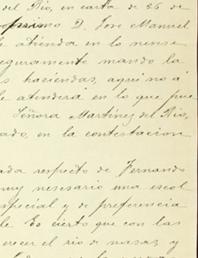 del Rio, en carta de 26 de
proximo D. Jose Manuel
le atienda en lo
seguramente mando la
s haciendas, aqui no á
le atenderá en lo que
Señora Martinez del Rio,
ado, en la contestacion
ada respecto de Fernando
muy necesario una
special y de preferencia
le Es cierto que con las
crecer el rio de nasas, y